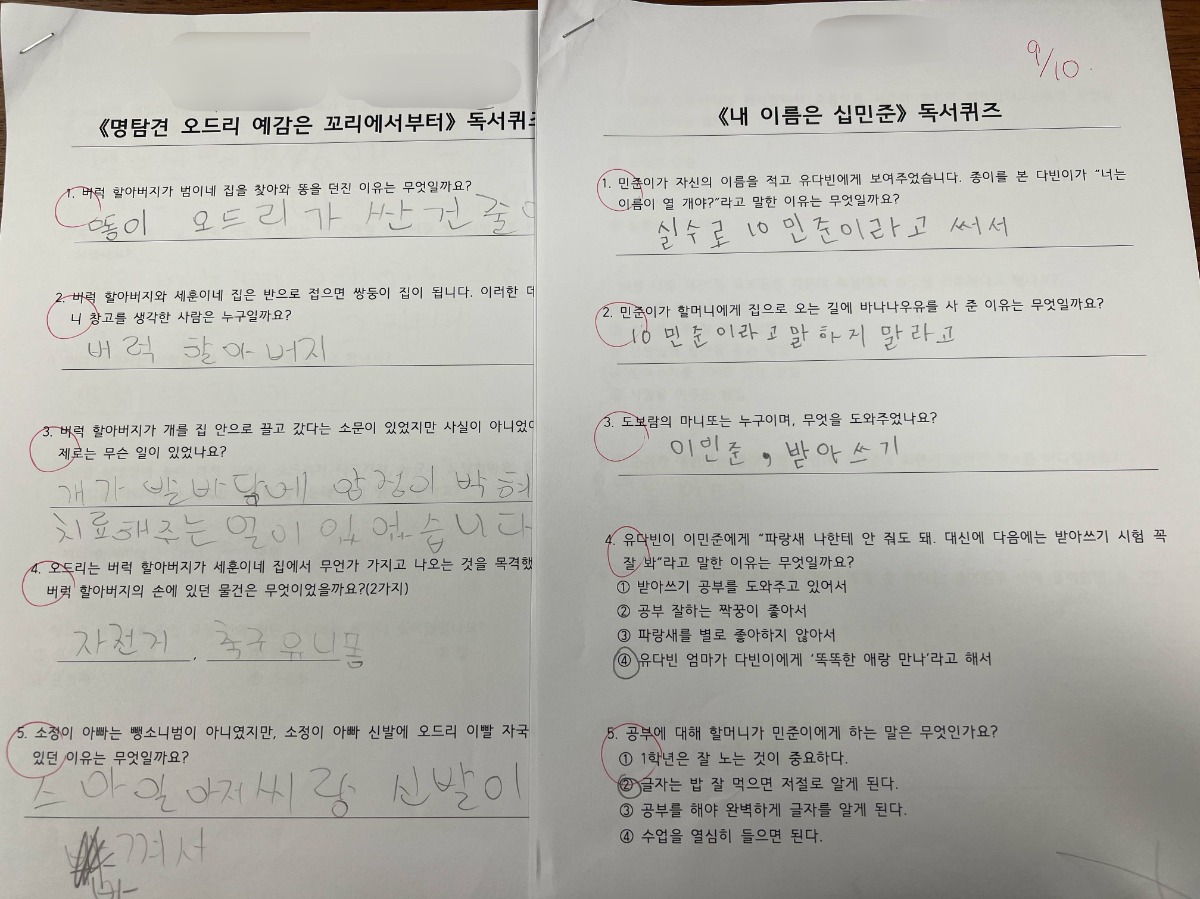 《명탐견 오드리 예감은 꼬리에서부터》 독서퀴즈
1. 버럭 할아버지가 범이네 집을 찾아와 똥을 던진 이유는 무엇일까요?
똥이 오드리가 싼 건 줄
2. 버럭 할아버지와 세훈이네 집은 반으로 접으면 쌍둥이 집이 됩니다. 이러한 데
니 창고를 생각한 사람은 누구일까요?
버럭 할아버지
3. 버럭 할아버지가 개를 집 안으로 끌고 갔다는 소문이 있었지만 사실이 아니었
제로는 무슨 일이 있었나요?
개가 발바닥에 압정이 박혀
치료해주는 일이 있었습니다
4. 오드리는 버럭 할아버지가 세훈이네 집에서 무언가 가지고 나오는 것을 목격했
버럭 할아버지의 손에 있던 물건은 무엇이었을까요?(2가지)
자전거, 축구유니폼
5. 소정이 아빠는 뺑소니범이 아니였지만, 소정이 아빠 신발에 오드리 이빨 자국
있던 이유는 무엇일까요?
스마일아저씨랑 신발이
바
껴서
9/10
《내 이름은 십민준》 독서퀴즈
1. 민준이가 자신의 이름을 적고 유다빈에게 보여주었습니다. 종이를 본 다빈이가 "너는
이름이 열 개야?"라고 말한 이유는 무엇일까요?
실수로 10민준이라고 써서
2. 민준이가 할머니에게 집으로 오는 길에 바나나우유를 사 준 이유는 무엇일까요?
10민준이라고말하지 말라고
3. 도보람의 마니또는 누구이며, 무엇을 도와주었나요?
이민준, 받아쓰기
4. 유다빈이 이민준에게 "파랑새 나한테 안 줘도 돼. 대신에 다음에는 받아쓰기 시험 꼭
잘 봐"라고 말한 이유는 무엇일까요?
① 받아쓰기 공부를 도와주고 있어서
② 공부 잘하는 짝꿍이 좋아서
③ 파랑새를 별로 좋아하지 않아서
④ 유다빈 엄마가 다빈이에게 '똑똑한 애랑 만나'라고 해서
5. 공부에 대해 할머니가 민준이에게 하는 말은 무엇인가요?
① 1학년은 잘 노는 것이 중요하다.
② 글자는 밥 잘 먹으면 저절로 알게 된다.
③ 공부를 해야 완벽하게 글자를 알게 된다.
④ 수업을 열심히 들으면 된다.